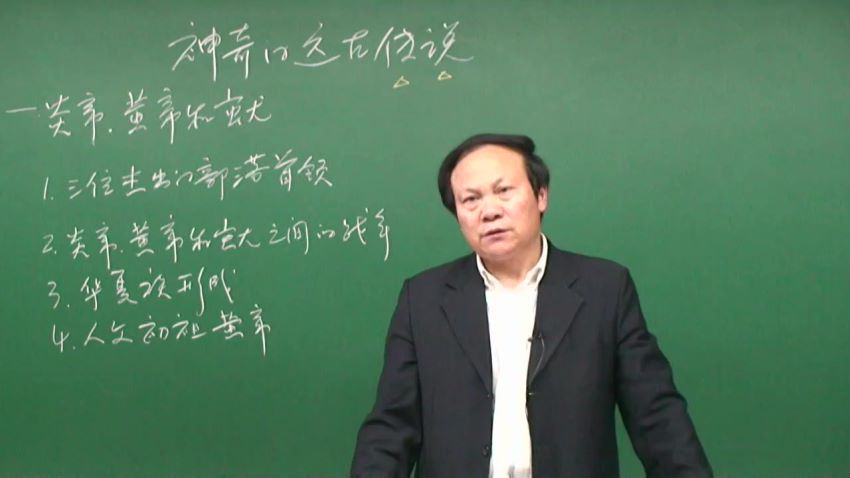 神奇的远古传说
一.炎帝、黄帝和蚩尤
1.三位杰出的部落首领
2.炎帝、黄帝和蚩尤之间的战争
3.华夏族形成
4.人文初祖黄帝